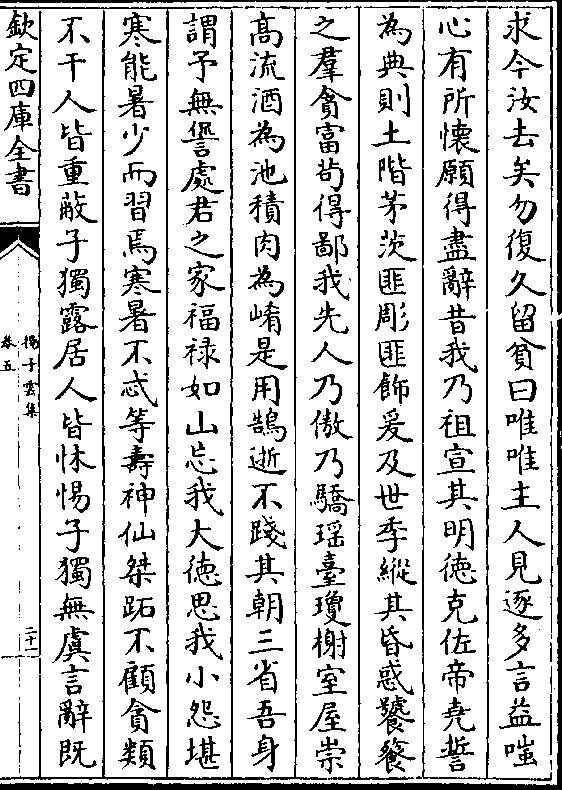 求今汝去矣勿復久留貧曰唯唯主人見逐多言益嗤
心有所懐願得盡辭昔我乃祖宣其明徳克佐帝堯誓
為典則土階茅茨匪彫匪飾爰及世季縱其昏惑饕餮
之羣貪富茍得鄙我先人乃傲乃驕瑶臺瓊榭室屋崇
髙流酒為池積肉為崤是用鵠逝不踐其朝三省吾身
謂予無諐處君之家福禄如山忘我大徳思我小怨堪
寒能暑少而習焉寒暑不忒等壽神仙桀跖不顧貪類
不干人皆重蔽子獨露居人皆怵惕子獨無虞言辭既
欽定四庫全書
揚子雲集
卷五
二十一